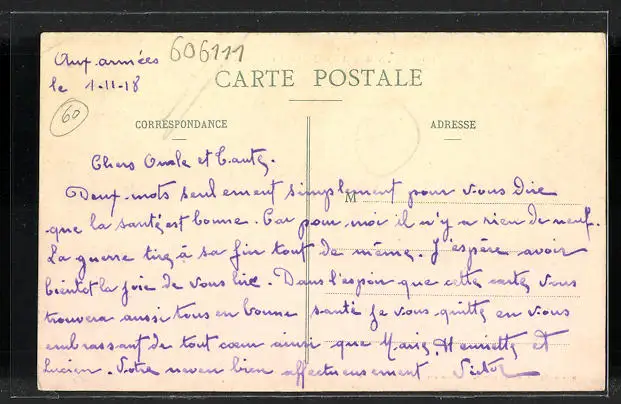 Aux armées
le 1-11-18
606111
60
CARTE POSTALE
CORRESPONDANCE
ADRESSE
Chers Oncle et Tante.
Deux mots seulement simplement pour vous dire
M
que la santé est bonne. Car pour moi il n'y a rien de neuf.
La guerre tire à sa fin tout de même. J'espère avoir
bientot la joie de vous lire. Dans l'espoir que cette carte vous
trouvera aussi tous en bonne santé je vous quitte en vous
embrassant de tout cœur ainsi que Marie, Henriette et
Lucien. Votre neveu bien affectueusement Victor